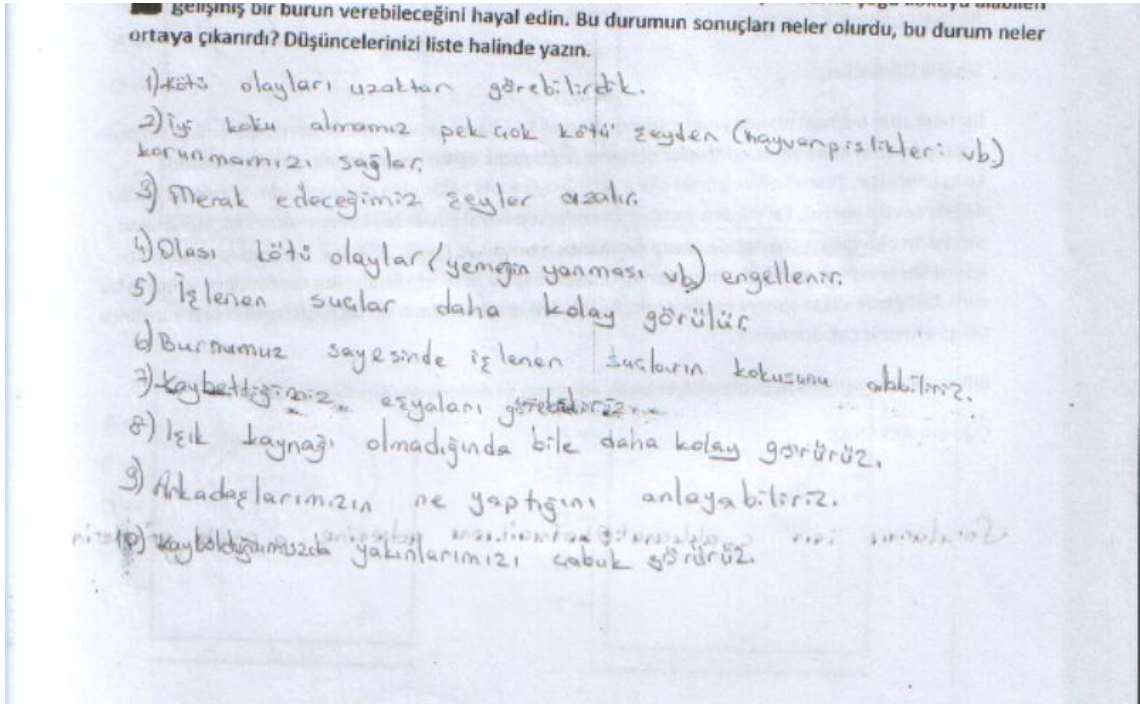 gelişmiş bir burun verebileceğini hayal edin. Bu durumun sonuçları neler olurdu, bu durum neler
ortaya çıkarırdı? Düşüncelerinizi liste halinde yazın.
1) Kötü olayları uzaktan görebilirdik.
2) İyi koku almamız pek çok kötü şeyden (hayvan pislikleri vb.)
korunmamızı sağlar.
3) Merak edeceğimiz şeyler azalır.
4) Olası kötü olaylar (yemeğin yanması vb) engellenir.
5) İşlenen suçlar daha kolay görülür.
6) Burnumuz sayesinde işlenen suçların kokusunu alabiliriz.
7) Kaybettiğimiz eşyaları görebiliriz.
8) Işık kaynağı olmadığında bile daha kolay görürüz.
9) Arkadaşlarımızın ne yaptığını anlayabiliriz.
10) Kaybolduğumuzda yakınlarımızı çabuk görürüz.